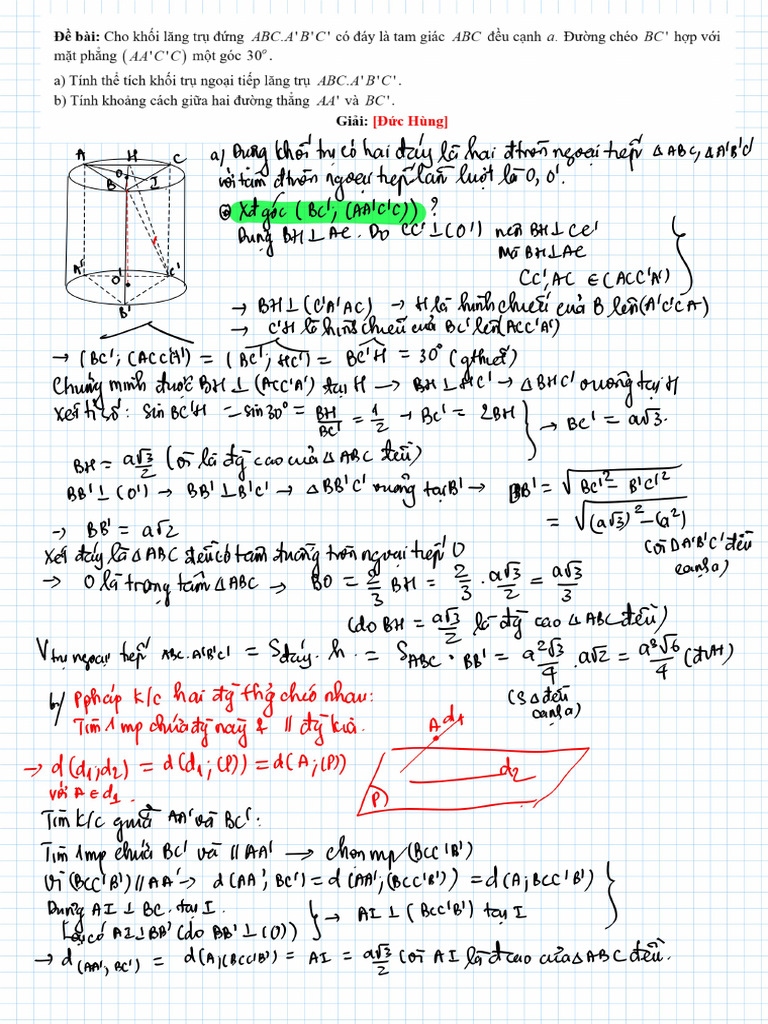 Đề bài: Cho khối lăng trụ đứng ABC.A'B'C' có đáy là tam giác ABC đều cạnh a. Đường chéo BC' hợp với
mặt phẳng (AA'C'C) một góc 30°.
a) Tính thể tích khối trụ ngoại tiếp lăng trụ ABC.A'B'C'.
b) Tính khoảng cách giữa hai đường thẳng AA' và BC'.
Giải: [Đức Hùng]
A H C
O
B I
A' O' C'
B'
a) Dựng khối trụ có hai đáy là hai đtròn ngoại tiếp △ABC, △A'B'C'
với tâm đtròn ngoại tiếp lần lượt là O, O'.
Xđ góc (BC'; (AA'C'C)) ?
Dựng BH⊥AC. Do CC'⊥(O') nên BH⊥CC'
Mà BH⊥AC
CC', AC ∈ (ACC'A')
→ BH⊥(C'A'AC) → H là hình chiếu của B lên (A'C'CA)
→ C'H là hình chiếu của BC' lên (ACC'A')
→ (BC'; (ACC'A')) = (BC'; HC') = BC'H = 30° (gthiết)
Chứng minh được BH⊥(ACC'A') tại H → BH⊥HC' → △BHC' vuông tại H
Xét tỉ số: sin BC'H = sin 30° = BH/BC' = 1/2 → BC' = 2BH
→ BC' = a√3.
BH = a√3/2 (vì là đg cao của △ABC đều)
BB'⊥(O') → BB'⊥B'C' → △BB'C' vuông tại B' → BB' = √(BC'² − B'C'²)
= √((a√3)² − (a²))
(vì △A'B'C' đều cạnh a)
→ BB' = a√2
Xét đáy là △ABC đều có tâm đường tròn ngoại tiếp O
→ O là trọng tâm △ABC → BO = 2/3 BH = 2/3 . a√3/2 = a√3/3
(do BH = a√3/2 là đg cao △ABC đều)
V trụ ngoại tiếp ABC.A'B'C' = Sđáy . h = S ABC . BB' = a²√3/4 . a√2 = a³√6/4 (đvtt)
(S△đều cạnh a)
b) Ppháp k/c hai đg thg chéo nhau:
Tìm 1 mp chứa đg này & // đg kia.
→ d(d1;d2) = d(d1;(P)) = d(A;(P))
với A∈d1.
A d1
d2
P)
Tìm k/c giữa AA' và BC':
Tìm 1mp chứa BC' và // AA' → chọn mp (BCC'B')
Vì (BCC'B') // AA' → d(AA'; BC') = d(AA'; (BCC'B')) = d(A; BCC'B')
Dựng AI⊥BC tại I.
Lại có AI⊥BB' (do BB'⊥(O))
→ AI⊥(BCC'B') tại I
→ d(AA', BC') = d(A;(BCC'B')) = AI = a√3/2 (vì AI là đ cao của △ABC đều.